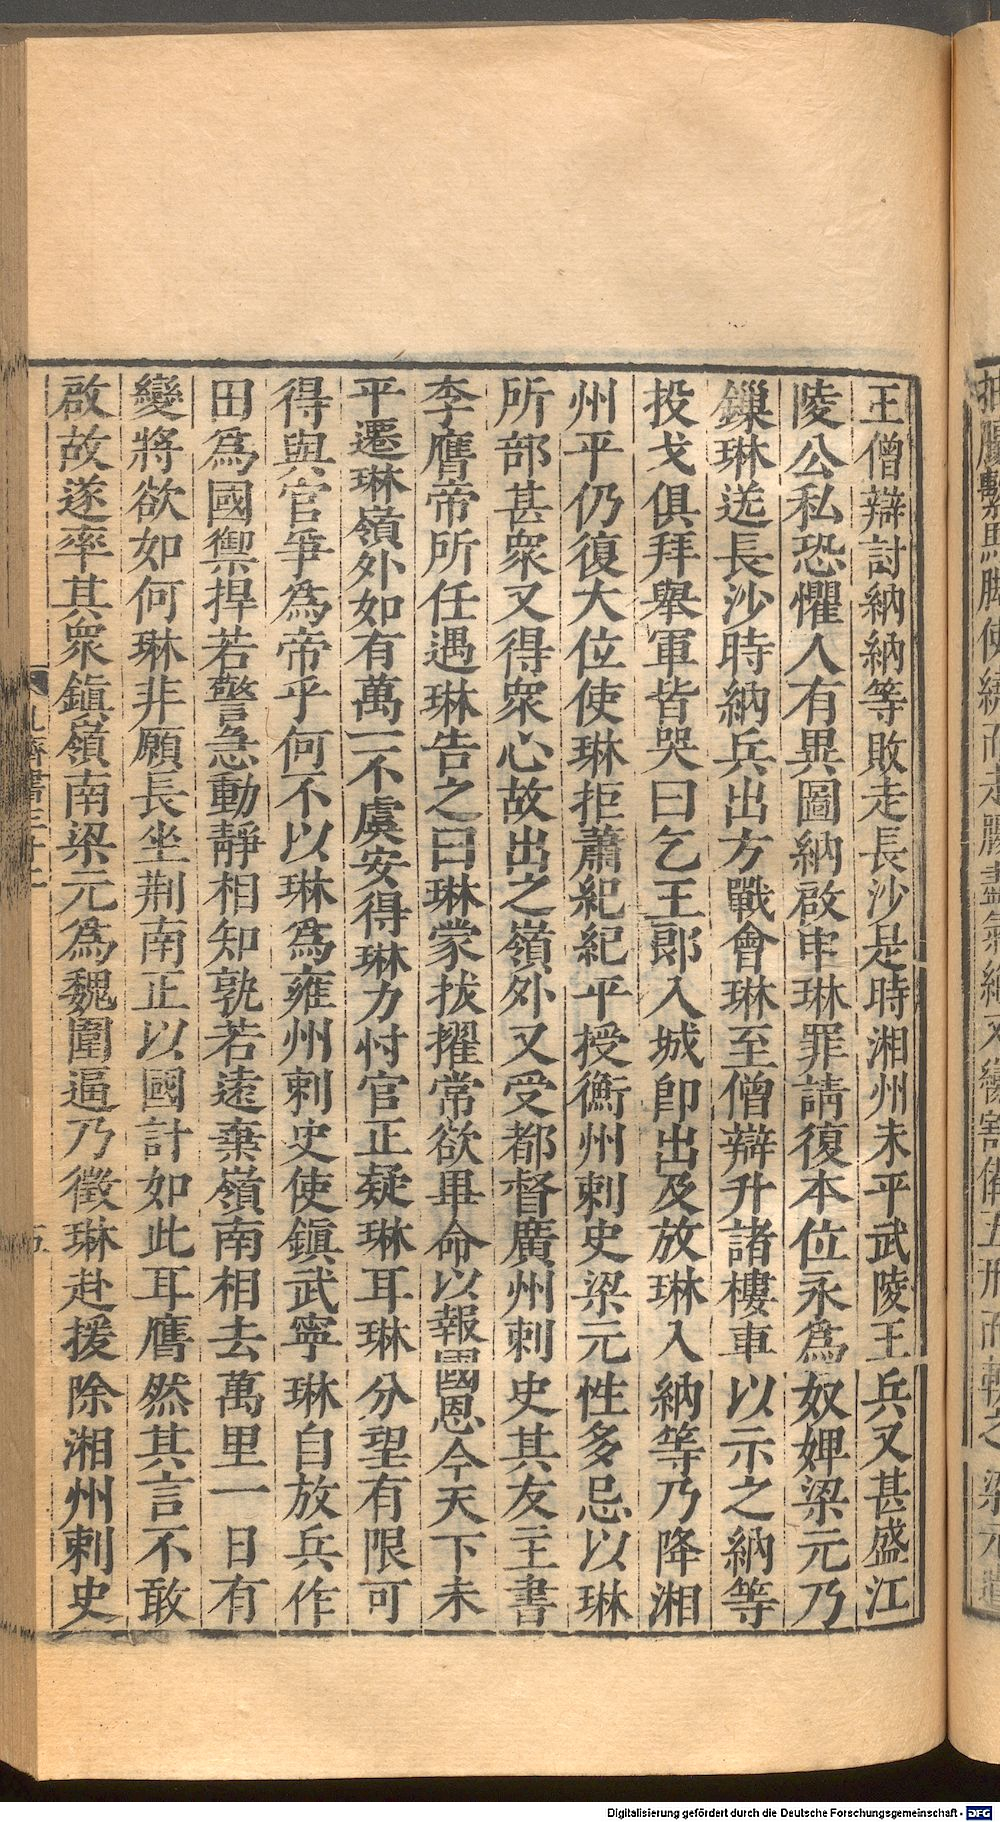 王僧辯討納納等敗走長沙是時湘州未平武陵王兵又甚盛江
陵公私恐懼人有異圖納啟申琳罪請復本位永爲奴婢梁元乃
鏁琳送長沙時納兵出方戰會琳至僧辯升諸樓車以示之納等
投戈俱拜舉軍皆哭曰乞王郎入城卽出及放琳入納等乃降湘
州平仍復大位使琳拒蕭紀紀平授衡州刺史梁元性多忌以琳
所部甚衆又得衆心故出之嶺外又受都督廣州刺史其友主書
李膺帝所任遇琳告之曰琳蒙拔擢常欲畢命以報國恩今天下未
平遷琳嶺外如有萬一不虞安得琳力忖官正疑琳耳琳分望有限可
得與官爭爲帝乎何不以琳爲雍州刺史使鎭武寧琳自放兵作
田爲國禦捍若警急動靜相知孰若遠棄嶺南相去萬里一日有
變將欲如何琳非願長坐荆南正以國計如此耳膺然其言不敢
啟故遂率其衆鎭嶺南梁元爲魏圍逼乃徵琳赴援除湘州刺史
Digitalisierung gefördert durch die Deutsche Forschungsgemeinschaft - DFG